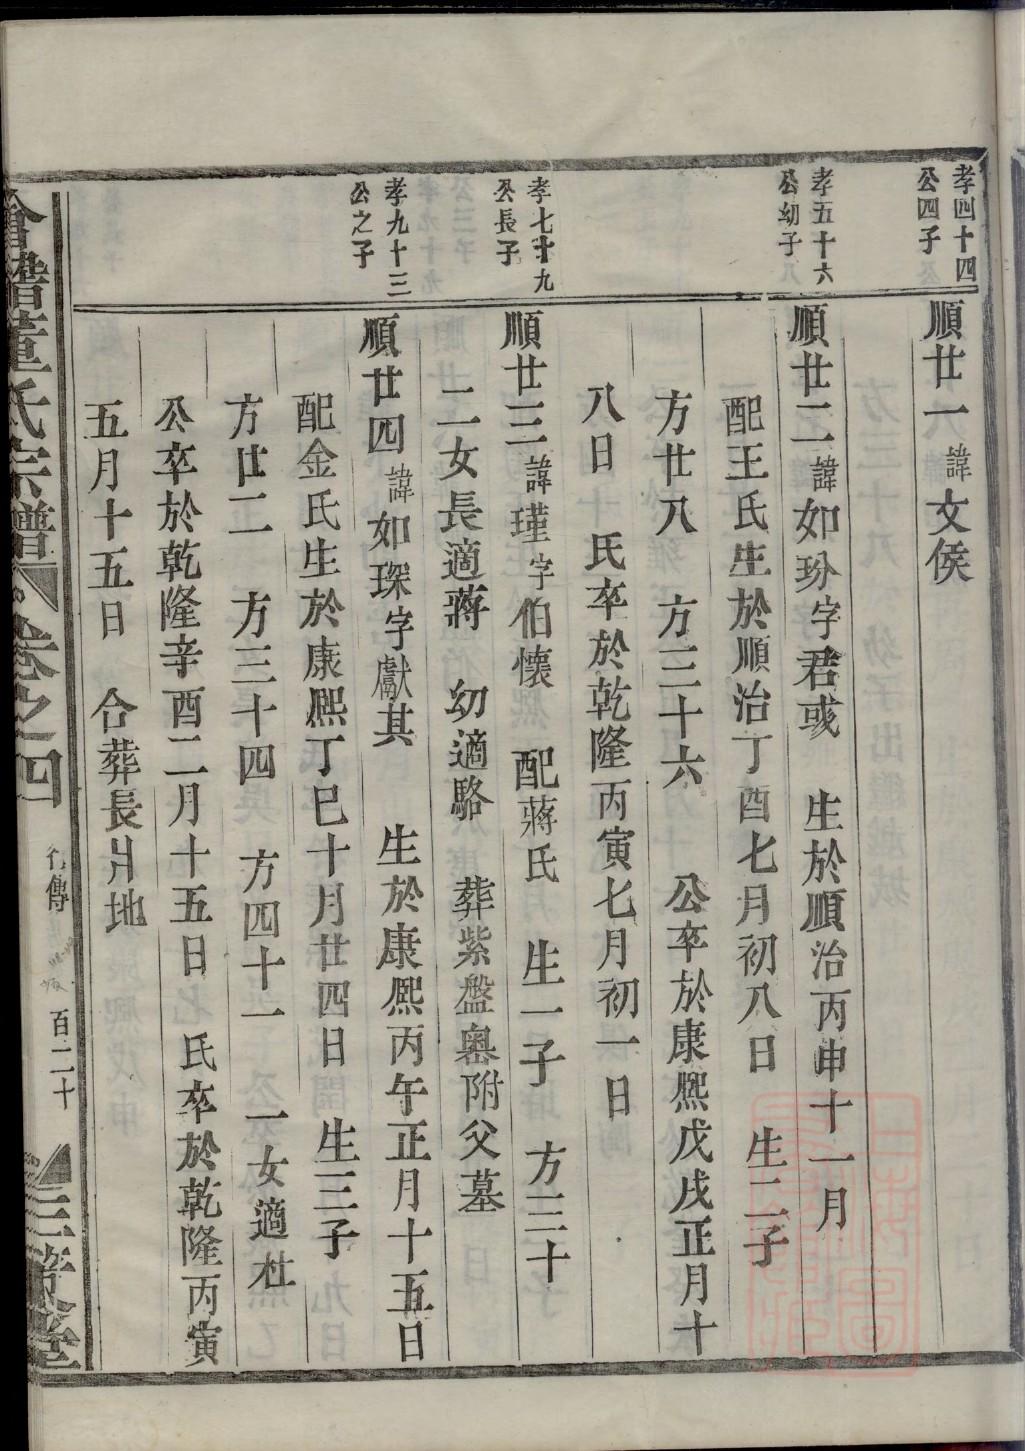 孝四十四
公四子
順廿一諱文侯
孝五十六
公幼子
順廿二諱如玢字君彧　生於順治丙申十一月
配王氏生於順治丁酉七月初八日　生二子
方廿八　方三十六　公卒於康熙戊戌正月十
八日　氏卒於乾隆丙寅七月初一日
孝七十九
公長子
順廿三諱瑾字伯懷　配蔣氏　生一子　方三十
二女長適蔣　幼適駱　葬紫盤奧附父墓
孝九十三
公之子
順廿四諱如琛字獻其　生於康熙丙午正月十五日
配金氏生於康熙丁巳十月廿四日　生三子
方廿二　方三十四　方四十一　一女適杜
公卒於乾隆辛酉二月十五日　氏卒於乾隆丙寅
五月十五日　合葬長爿地
會稽董氏宗譜　卷之四　行傳　百二十　三策堂
上海圖書館藏